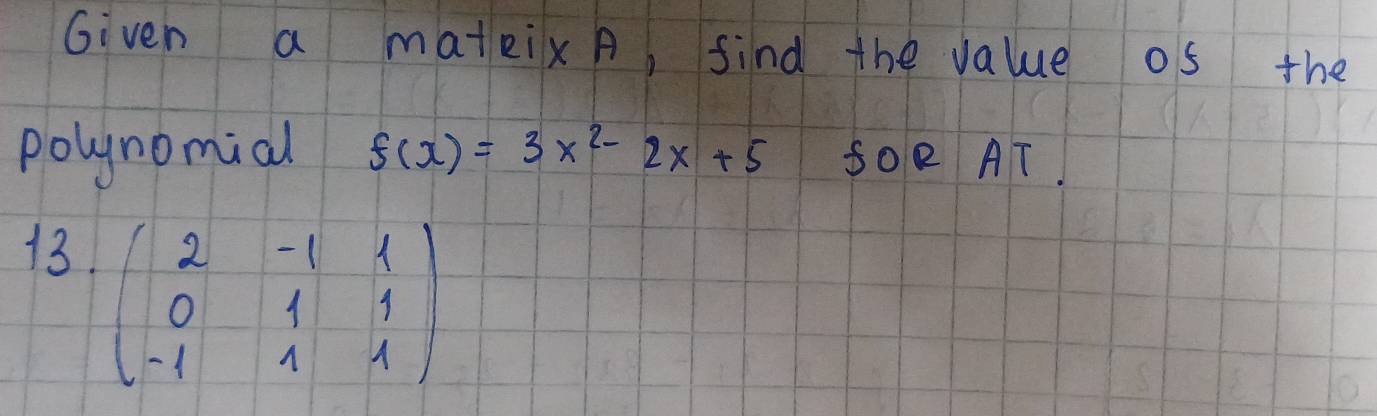 Given a matrix A, find the value of the
polynomial f(x) = 3x²- 2x + 5 for AT.
13. ( 2 -1 1
0 1 1
-1 1 1 )